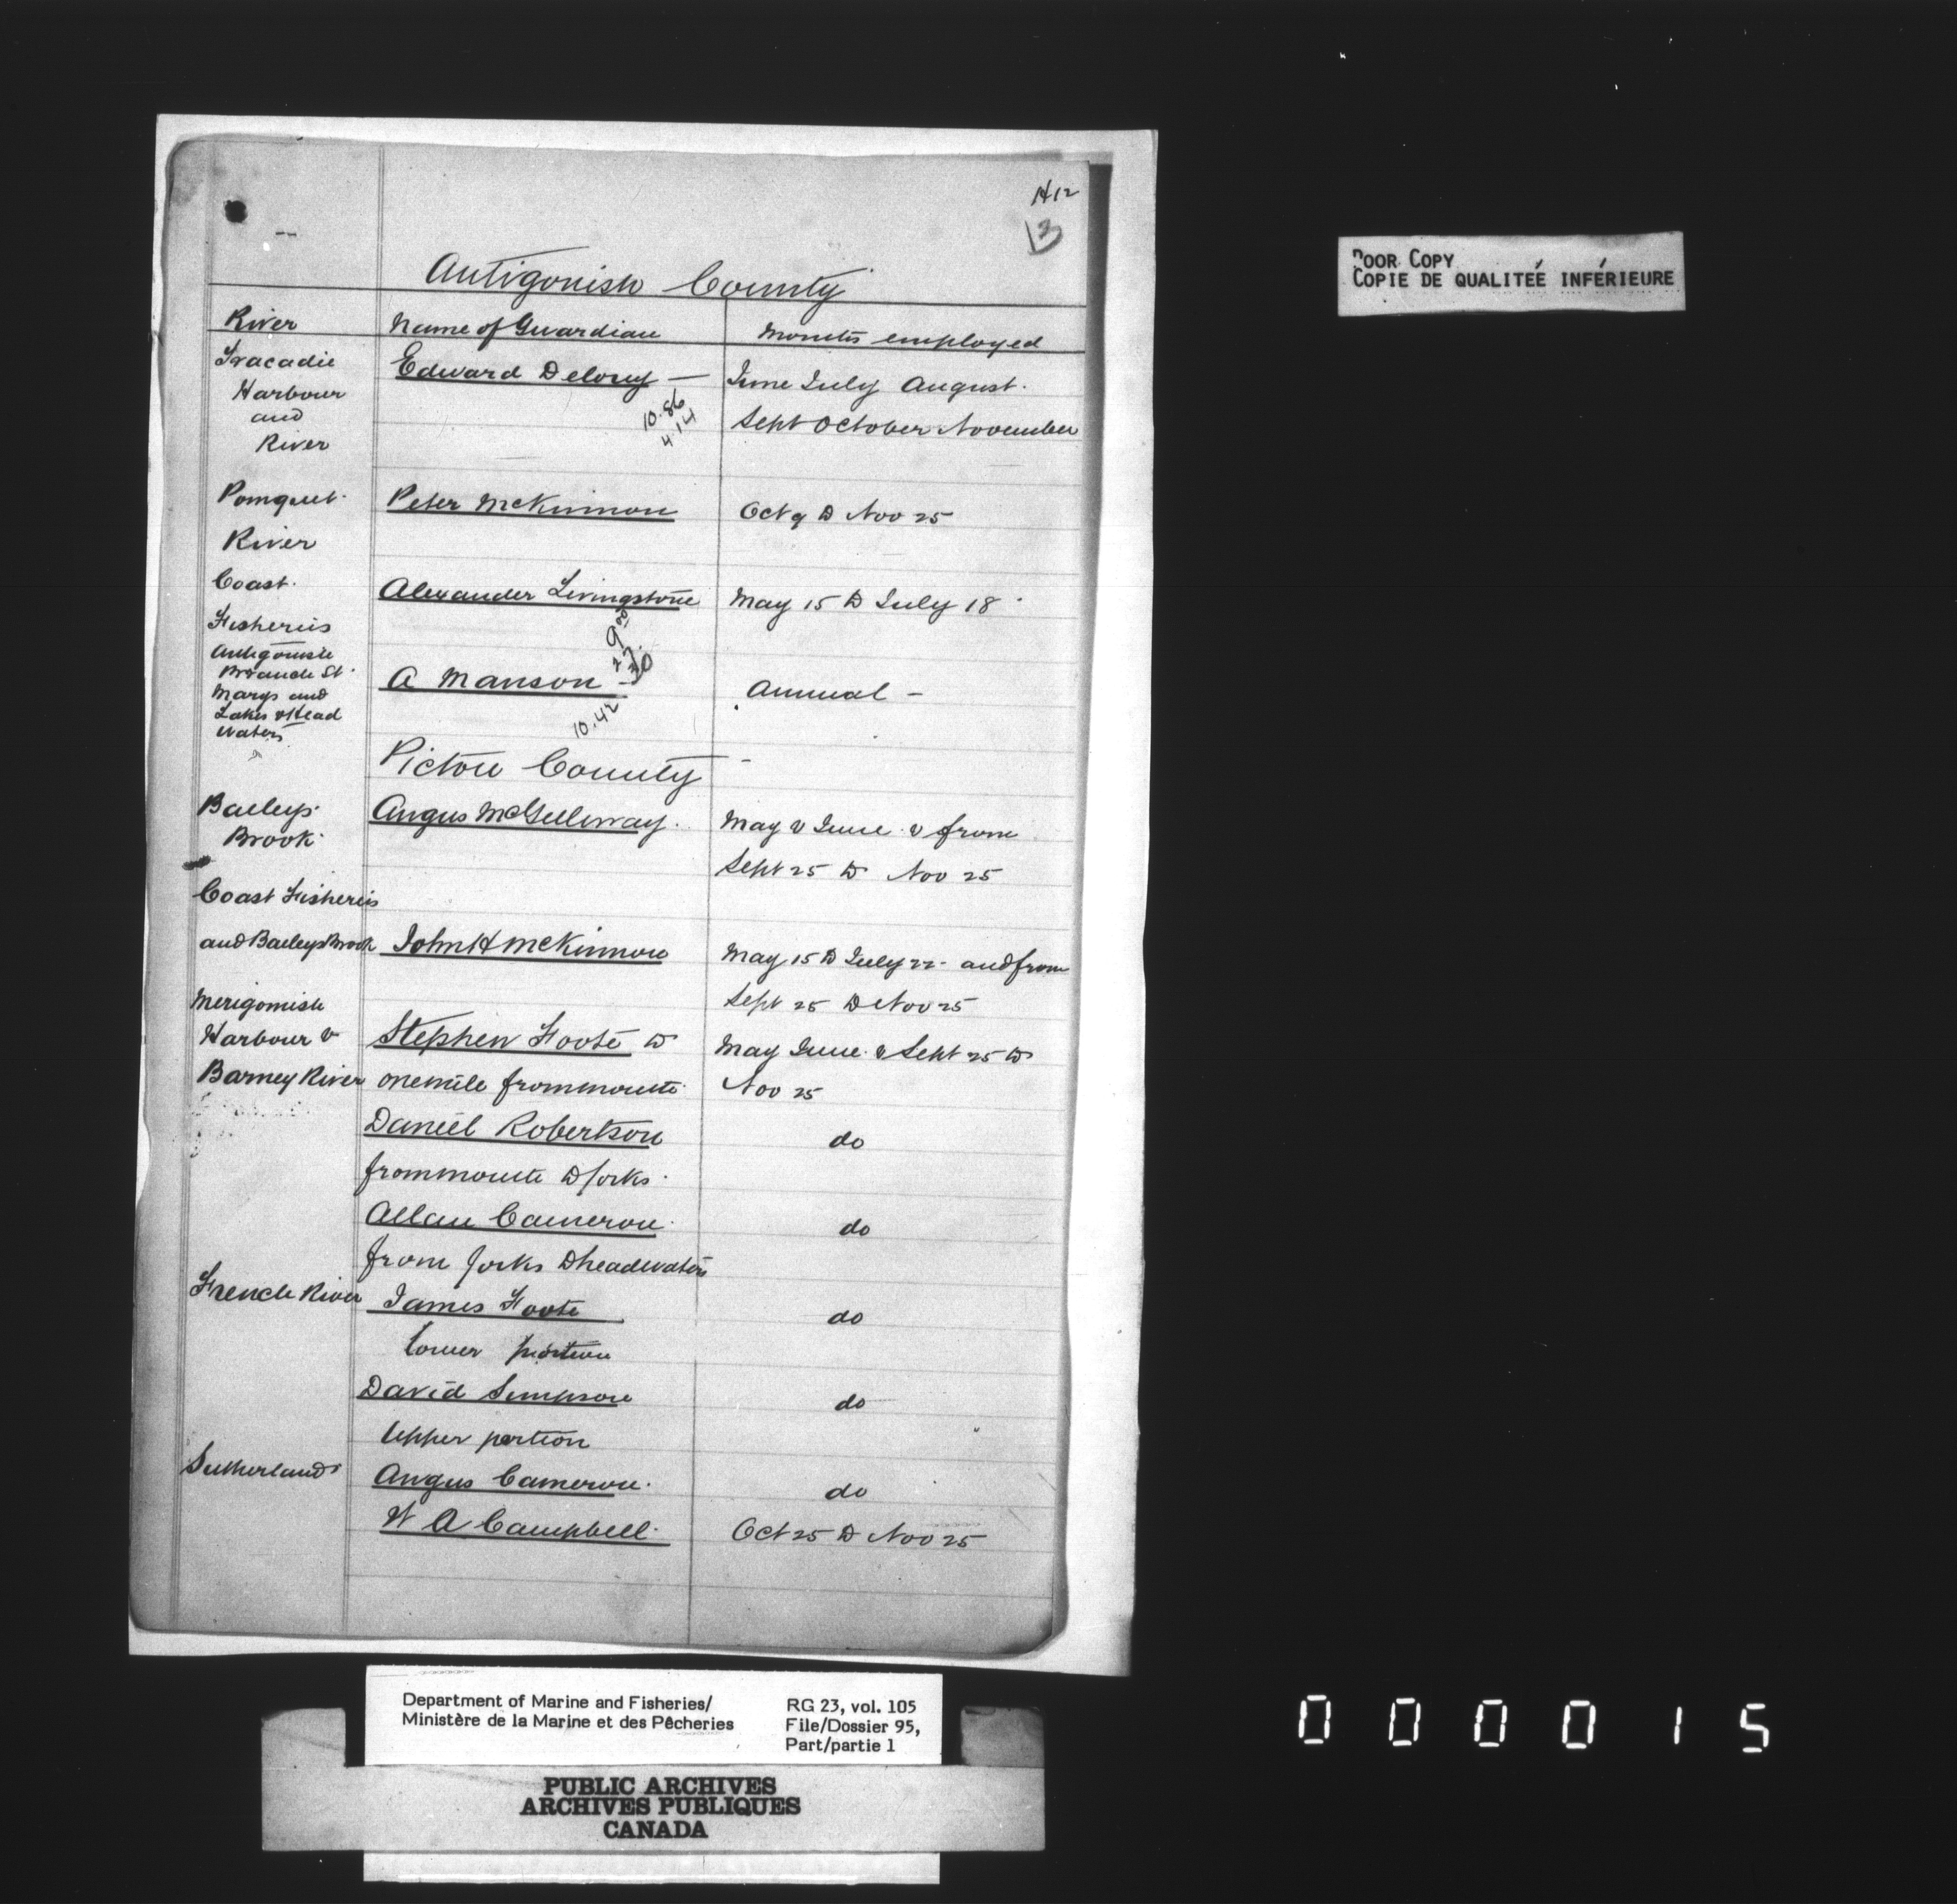 H12
13
Antigonish County
River Name of Guardian Months employed
Tracadie Edward Delorey — June July August.
Harbour Sept October November
and 10.86
River 4.14
Pomquet Peter McKinnon Oct 9 to Nov 25
River
Coast Alexander Livingstone May 15 to July 18
Fisheries 9.00
Antigonish
Branch St A Manson — Annual —
Marys and
Lakes & Head 10.42
Waters
Pictou County —
Baileys Angus McGillivray May & June & from
Brook Sept 25 to Nov 25
Coast Fisheries
and Baileys Brook John H McKinnon May 15 to July 22 and from
Merigomish Sept 25 to Nov 25
Harbour & Stephen Foote to May June & Sept 25 to
Barney River one mile from mouth Nov 25
Daniel Robertson do
from mouth to forks
Allan Cameron do
from forks to headwaters
French River James Foote do
lower portion
David Simpson do
Upper portion
Sutherlands Angus Cameron do
W A Campbell Oct 25 to Nov 25
POOR COPY
COPIE DE QUALITEÉ INFÉRIEURE
Department of Marine and Fisheries/
Ministère de la Marine et des Pêcheries
RG 23, vol. 105
File/Dossier 95,
Part/partie 1
PUBLIC ARCHIVES
ARCHIVES PUBLIQUES
CANADA
000015